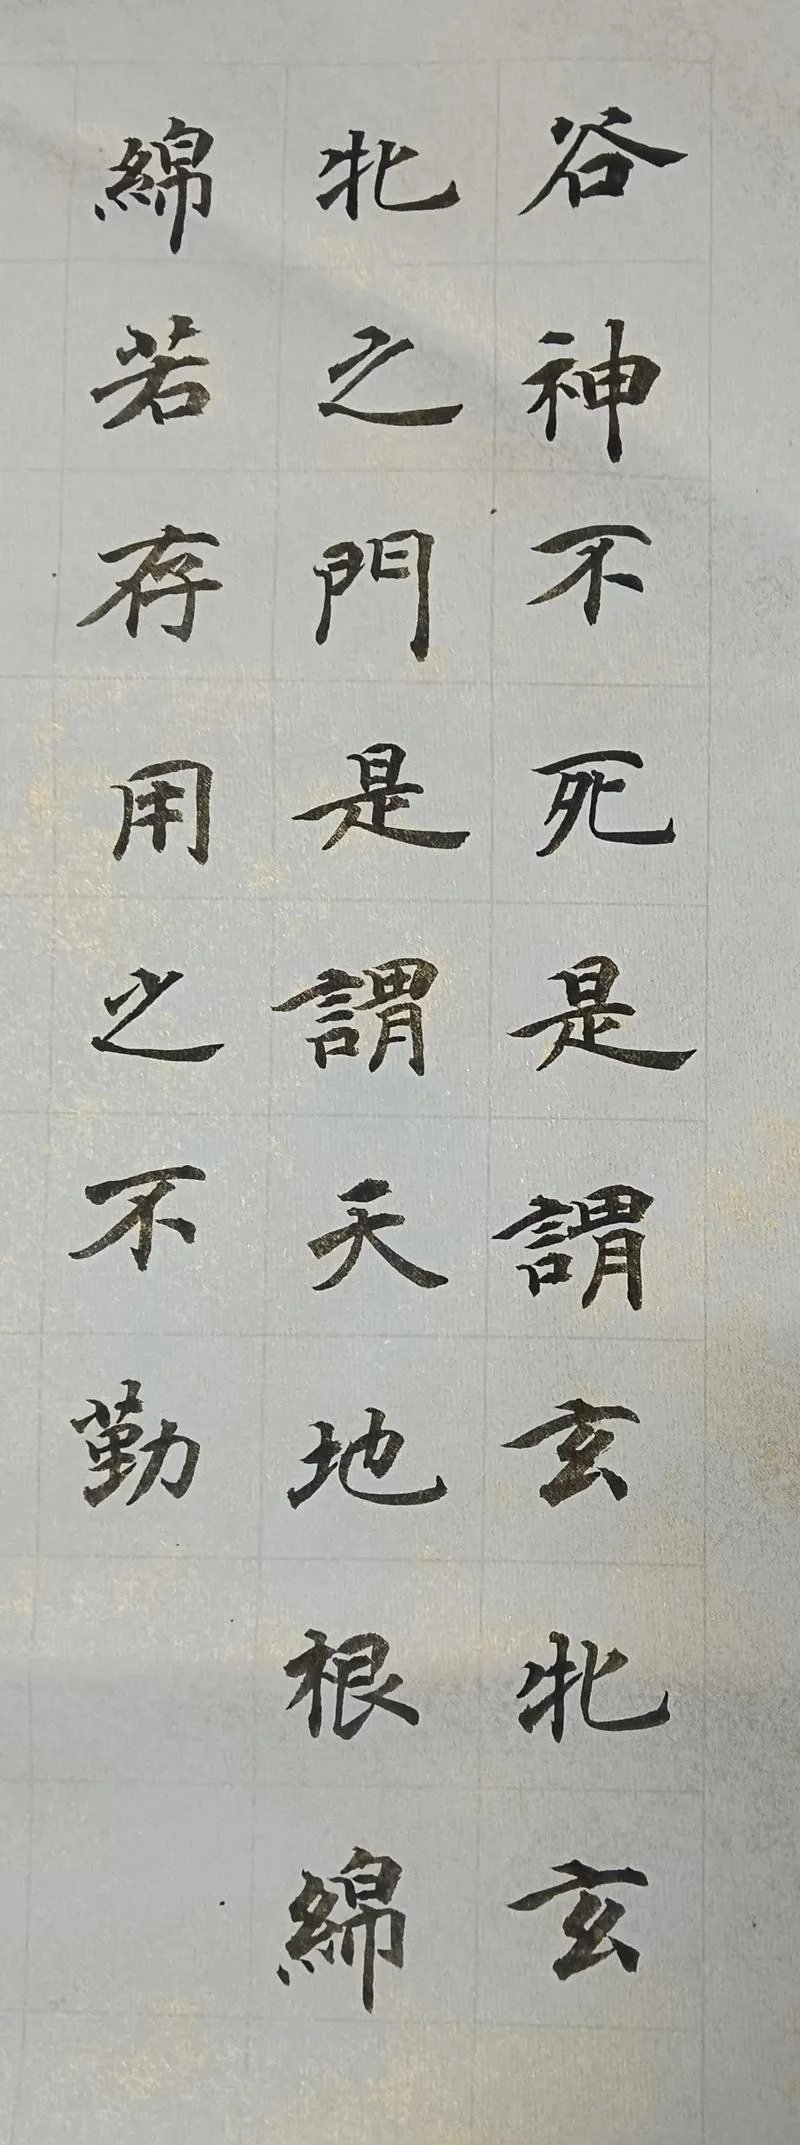 谷神不死是謂玄牝玄
牝之門是謂天地根綿
綿若存用之不勤